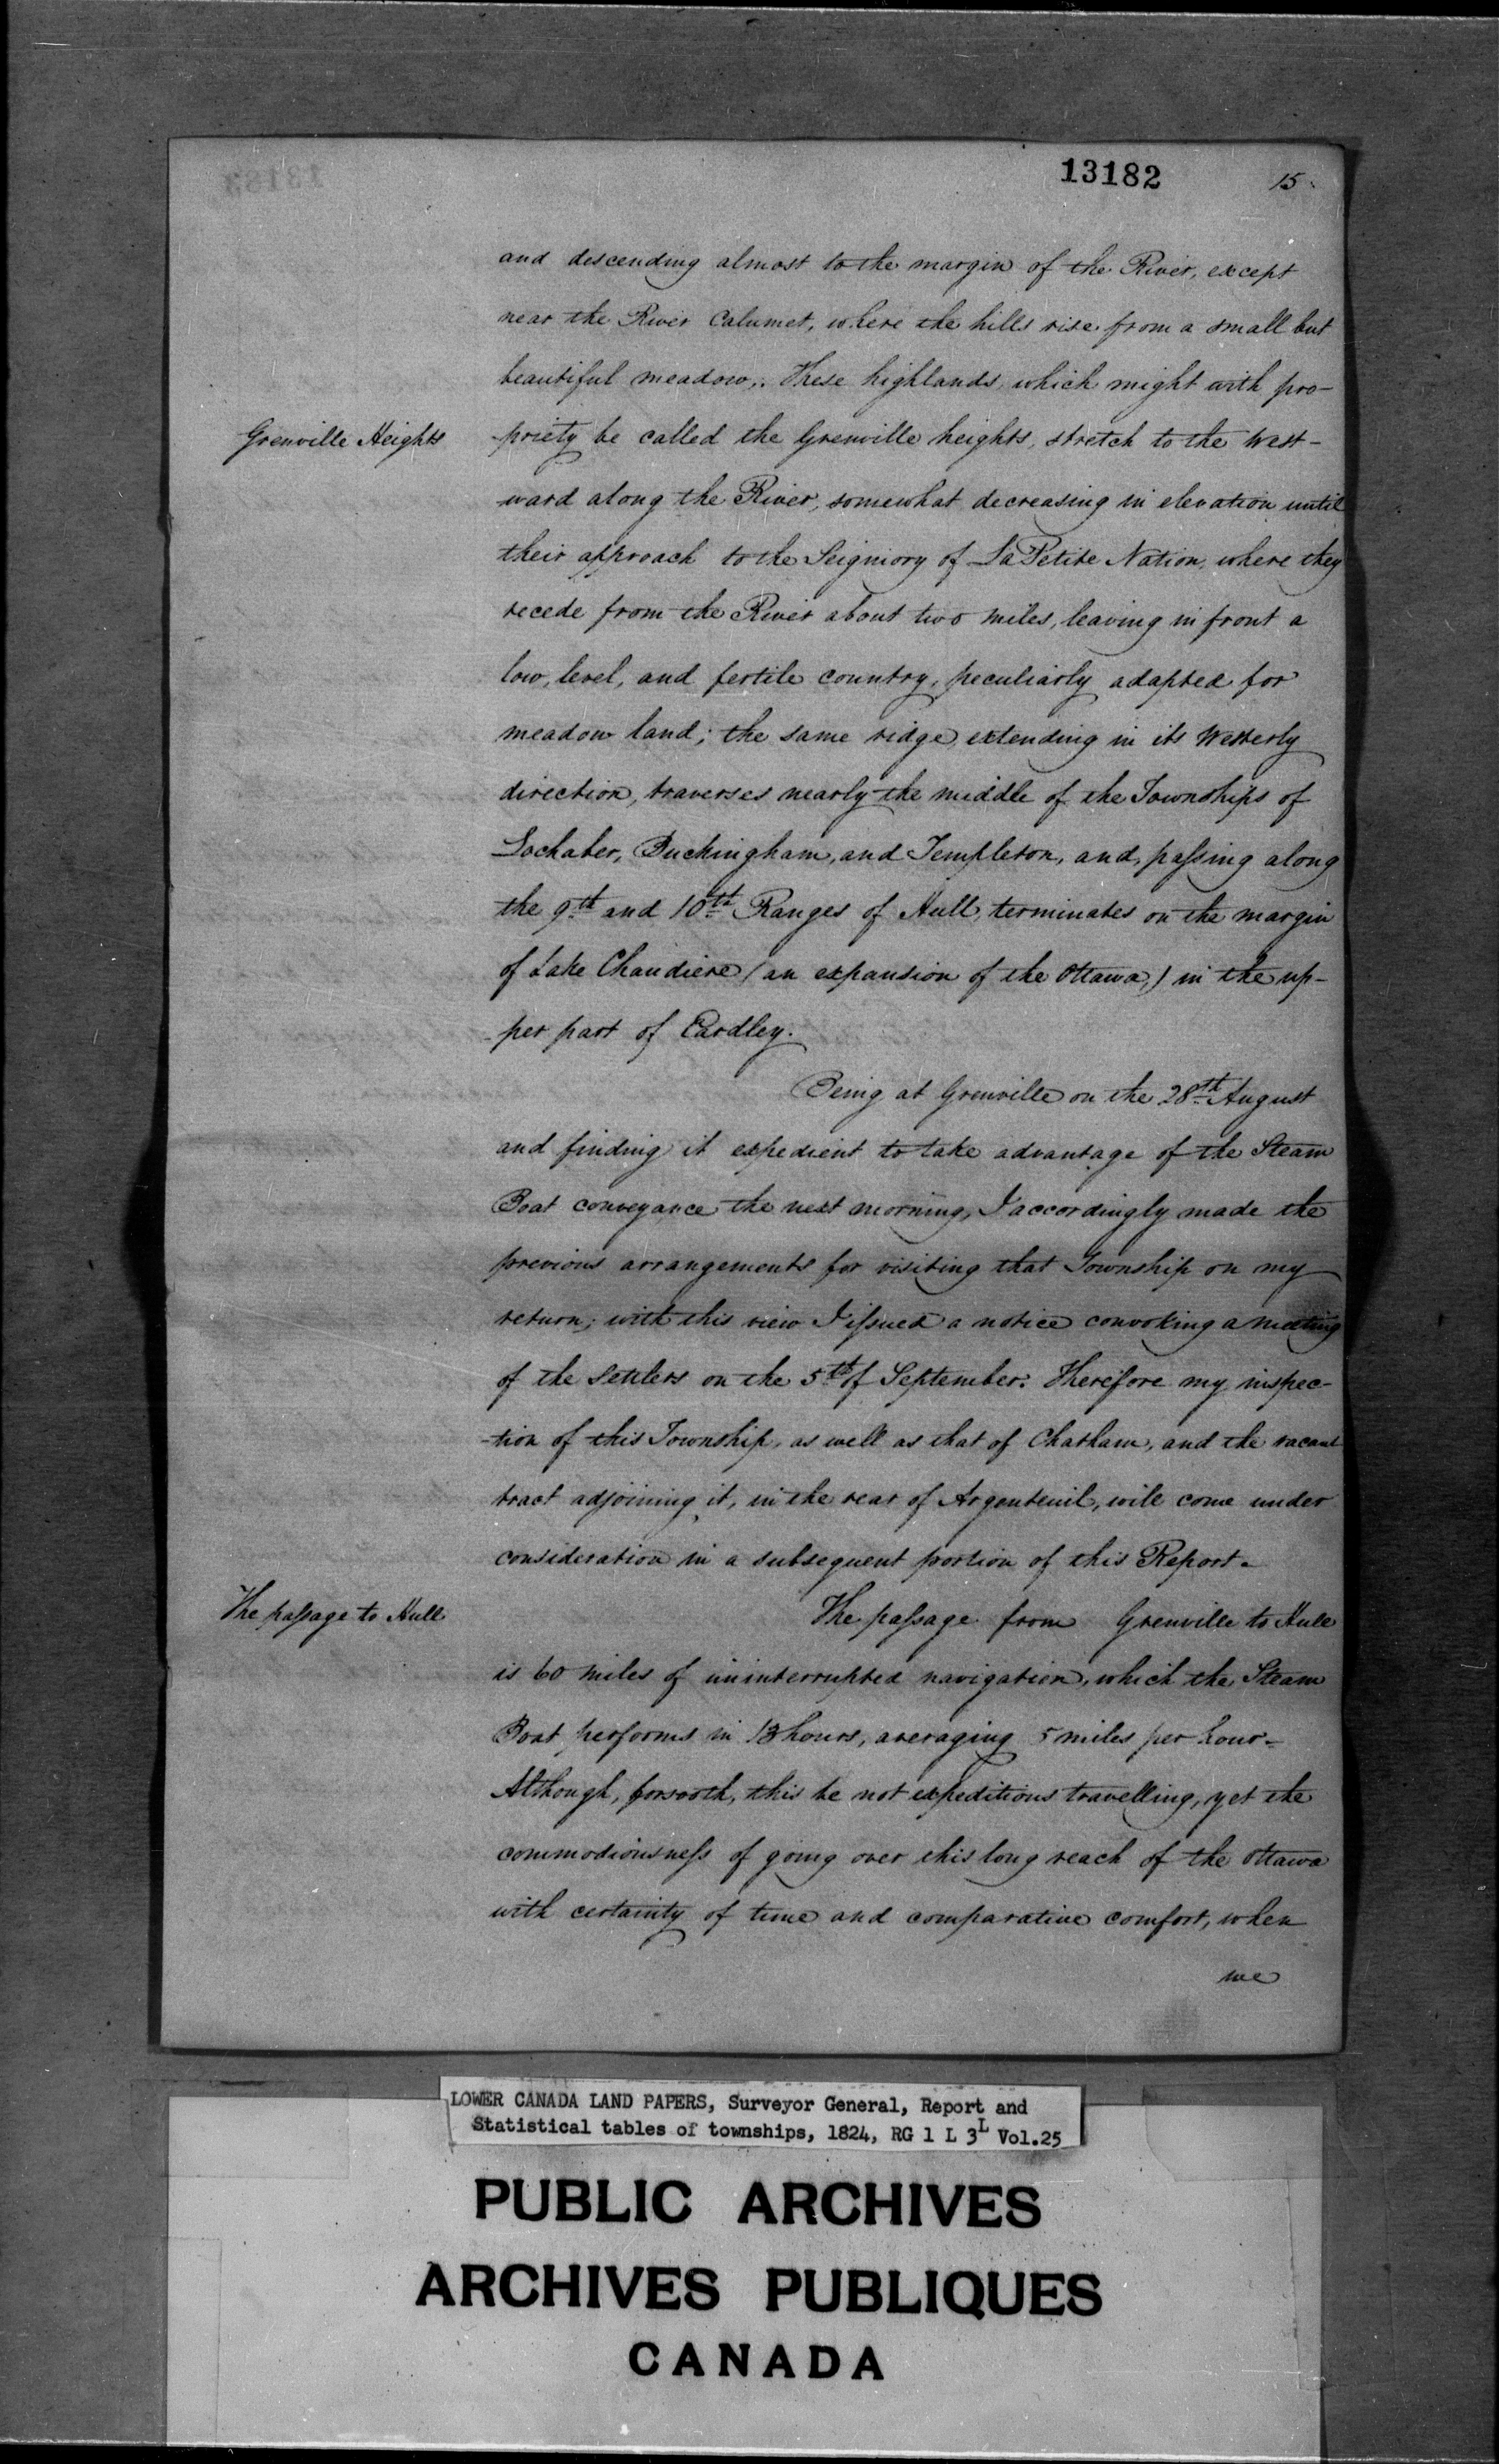 13182 15
and descending almost to the margin of the River, except
near the River Calumet, where the hills rise from a small but
beautiful meadow,. These highlands which might with pro-
Grenville Heights
-priety be called the Grenville heights, stretch to the West-
-ward along the River, somewhat decreasing in elevation until
their approach to the Seigniory of La Petite Nation, where they
recede from the River about two miles, leaving in front a
low, level, and fertile country, peculiarly adapted for
meadow land; the same ridge extending in its Westerly
direction, traverses nearly the middle of the Townships of
Lochaber, Buckingham, and Templeton, and, passing along
the 9th and 10th Ranges of Hull, terminates on the margin
of Lake Chaudiere (an expansion of the Ottawa,) in the up-
-per part of Eardley.
Being at Grenville on the 28th August
and finding it expedient to take advantage of the Steam
Boat conveyance the next morning, I accordingly made the
previous arrangements for visiting that Township on my
return; with this view I issued a notice convoking a meeting
of the Settlers on the 5th of September. Therefore my inspec-
-tion of this Township, as well as that of Chatham, and the vacant
tract adjoining it, in the rear of Argenteuil, will come under
consideration in a subsequent portion of this Report.
The passage to Hull
The passage from Grenville to Hull
is 60 miles of uninterrupted navigation, which the Steam
Boat performs in 13 hours, averaging 5 miles per hour.
Although, forsooth, this be not expeditious travelling, yet the
commodiousness of going over this long reach of the Ottawa
with certainty of time and comparative comfort, when
we
LOWER CANADA LAND PAPERS, Surveyor General, Report and
Statistical tables of townships, 1824, RG 1 L 3L Vol.25
PUBLIC ARCHIVES
ARCHIVES PUBLIQUES
CANADA